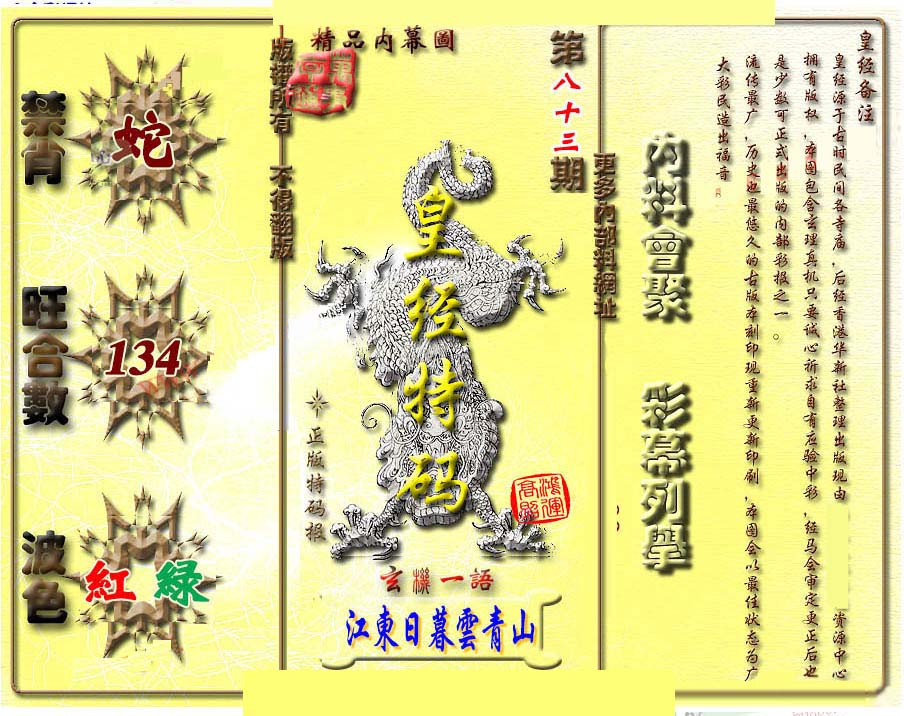 精品内幕圖
第八十三期
版權所有 不得翻版
更多内部料網址
禁肖
蛇
旺合數
134
波色
紅 綠
皇经特码
正版特码报
鴻運高照
玄機一語
江東日暮雲青山
内料會聚
彩幕列擧
皇经备注
皇经源于古时民间各寺庙,后经香港华新社整理出版现由 资源中心
拥有版权,本图包含玄理真机只要诚心祈求自有应验中彩,经马会审定更正后也
是少数可正式出版的内部彩报之一。
流传最广,历史也最悠久的古版本刻印现重新更新印刷,本图会以最佳状态为广
大彩民造出福音